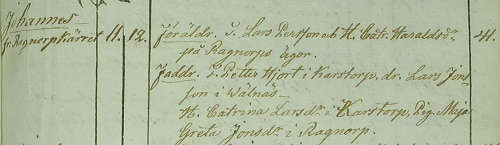 Johannes
fr. Ragnorp Kärret 11. 12. Föräldr. T. Lars Persson och H. Catr. Haraldsdr 41.
på Ragnorps ägor.
Faddr. T. Petter Hjort i Karstorp, dr. Lars Jons-
son i Wälnäs-
H. Catrina Larsdr i Karstorp, Pig. Maja
Greta Jonsdr i Ragnorp.